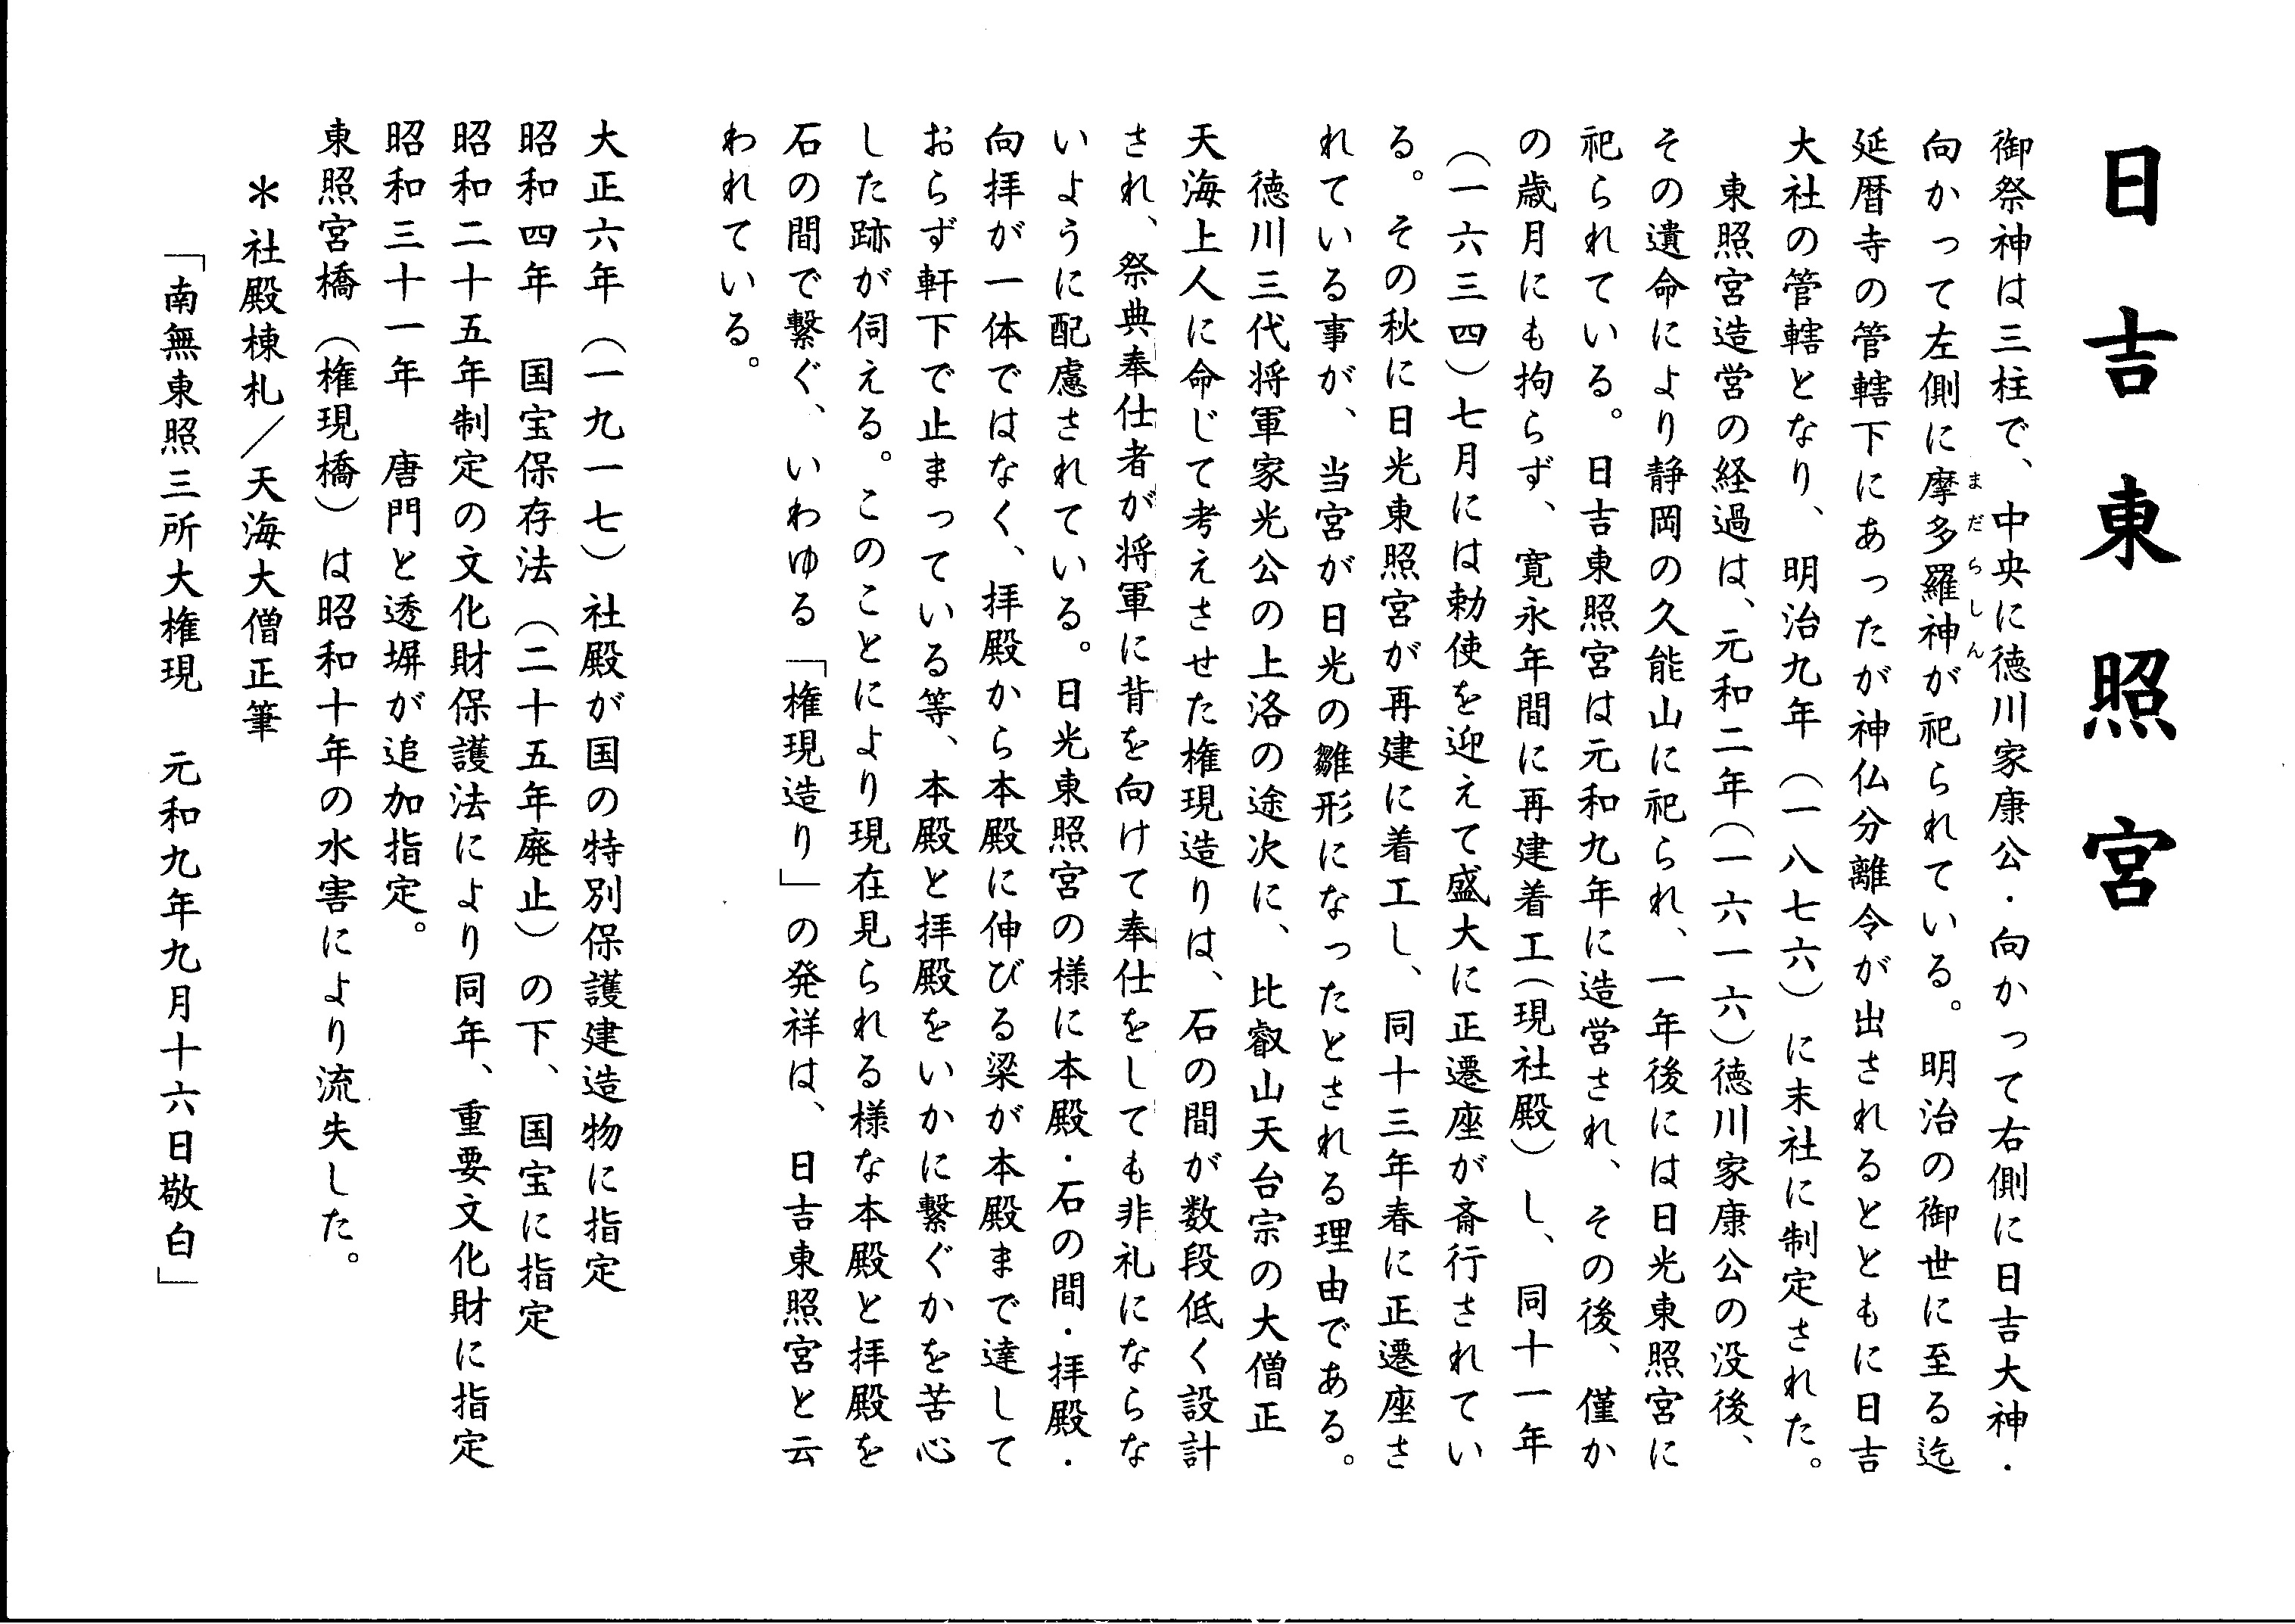 日吉東照宮
御祭神は三柱で、中央に徳川家康公・向かって右側に日吉大神・
向かって左側に摩多羅神が祀られている。明治の御世に至る迄
まだらしん
延暦寺の管轄下にあったが神仏分離令が出されるとともに日吉
大社の管轄となり、明治九年（一八七六）に末社に制定された。
東照宮造営の経過は、元和二年（一六一六）徳川家康公の没後、
その遺命により静岡の久能山に祀られ、一年後には日光東照宮に
祀られている。日吉東照宮は元和九年に造営され、その後、僅か
の歳月にも拘らず、寛永年間に再建着工（現社殿）し、同十一年
（一六三四）七月には勅使を迎えて盛大に正遷座が斎行されてい
る。その秋に日光東照宮が再建に着工し、同十三年春に正遷座さ
れている事が、当宮が日光の雛形になったとされる理由である。
徳川三代将軍家光公の上洛の途次に、比叡山天台宗の大僧正
天海上人に命じて考えさせた権現造りは、石の間が数段低く設計
され、祭典奉仕者が将軍に背を向けて奉仕をしても非礼にならな
いように配慮されている。日光東照宮の様に本殿・石の間・拝殿・
向拝が一体ではなく、拝殿から本殿に伸びる梁が本殿まで達して
おらず軒下で止まっている等、本殿と拝殿をいかに繋ぐかを苦心
した跡が伺える。このことにより現在見られる様な本殿と拝殿を
石の間で繋ぐ、いわゆる「権現造り」の発祥は、日吉東照宮と云
われている。
大正六年（一九一七）社殿が国の特別保護建造物に指定
昭和四年　国宝保存法（二十五年廃止）の下、国宝に指定
昭和二十五年制定の文化財保護法により同年、重要文化財に指定
昭和三十一年　唐門と透塀が追加指定。
東照宮橋（権現橋）は昭和十年の水害により流失した。
＊社殿棟札／天海大僧正筆
「南無東照三所大権現　元和九年九月十六日敬白」